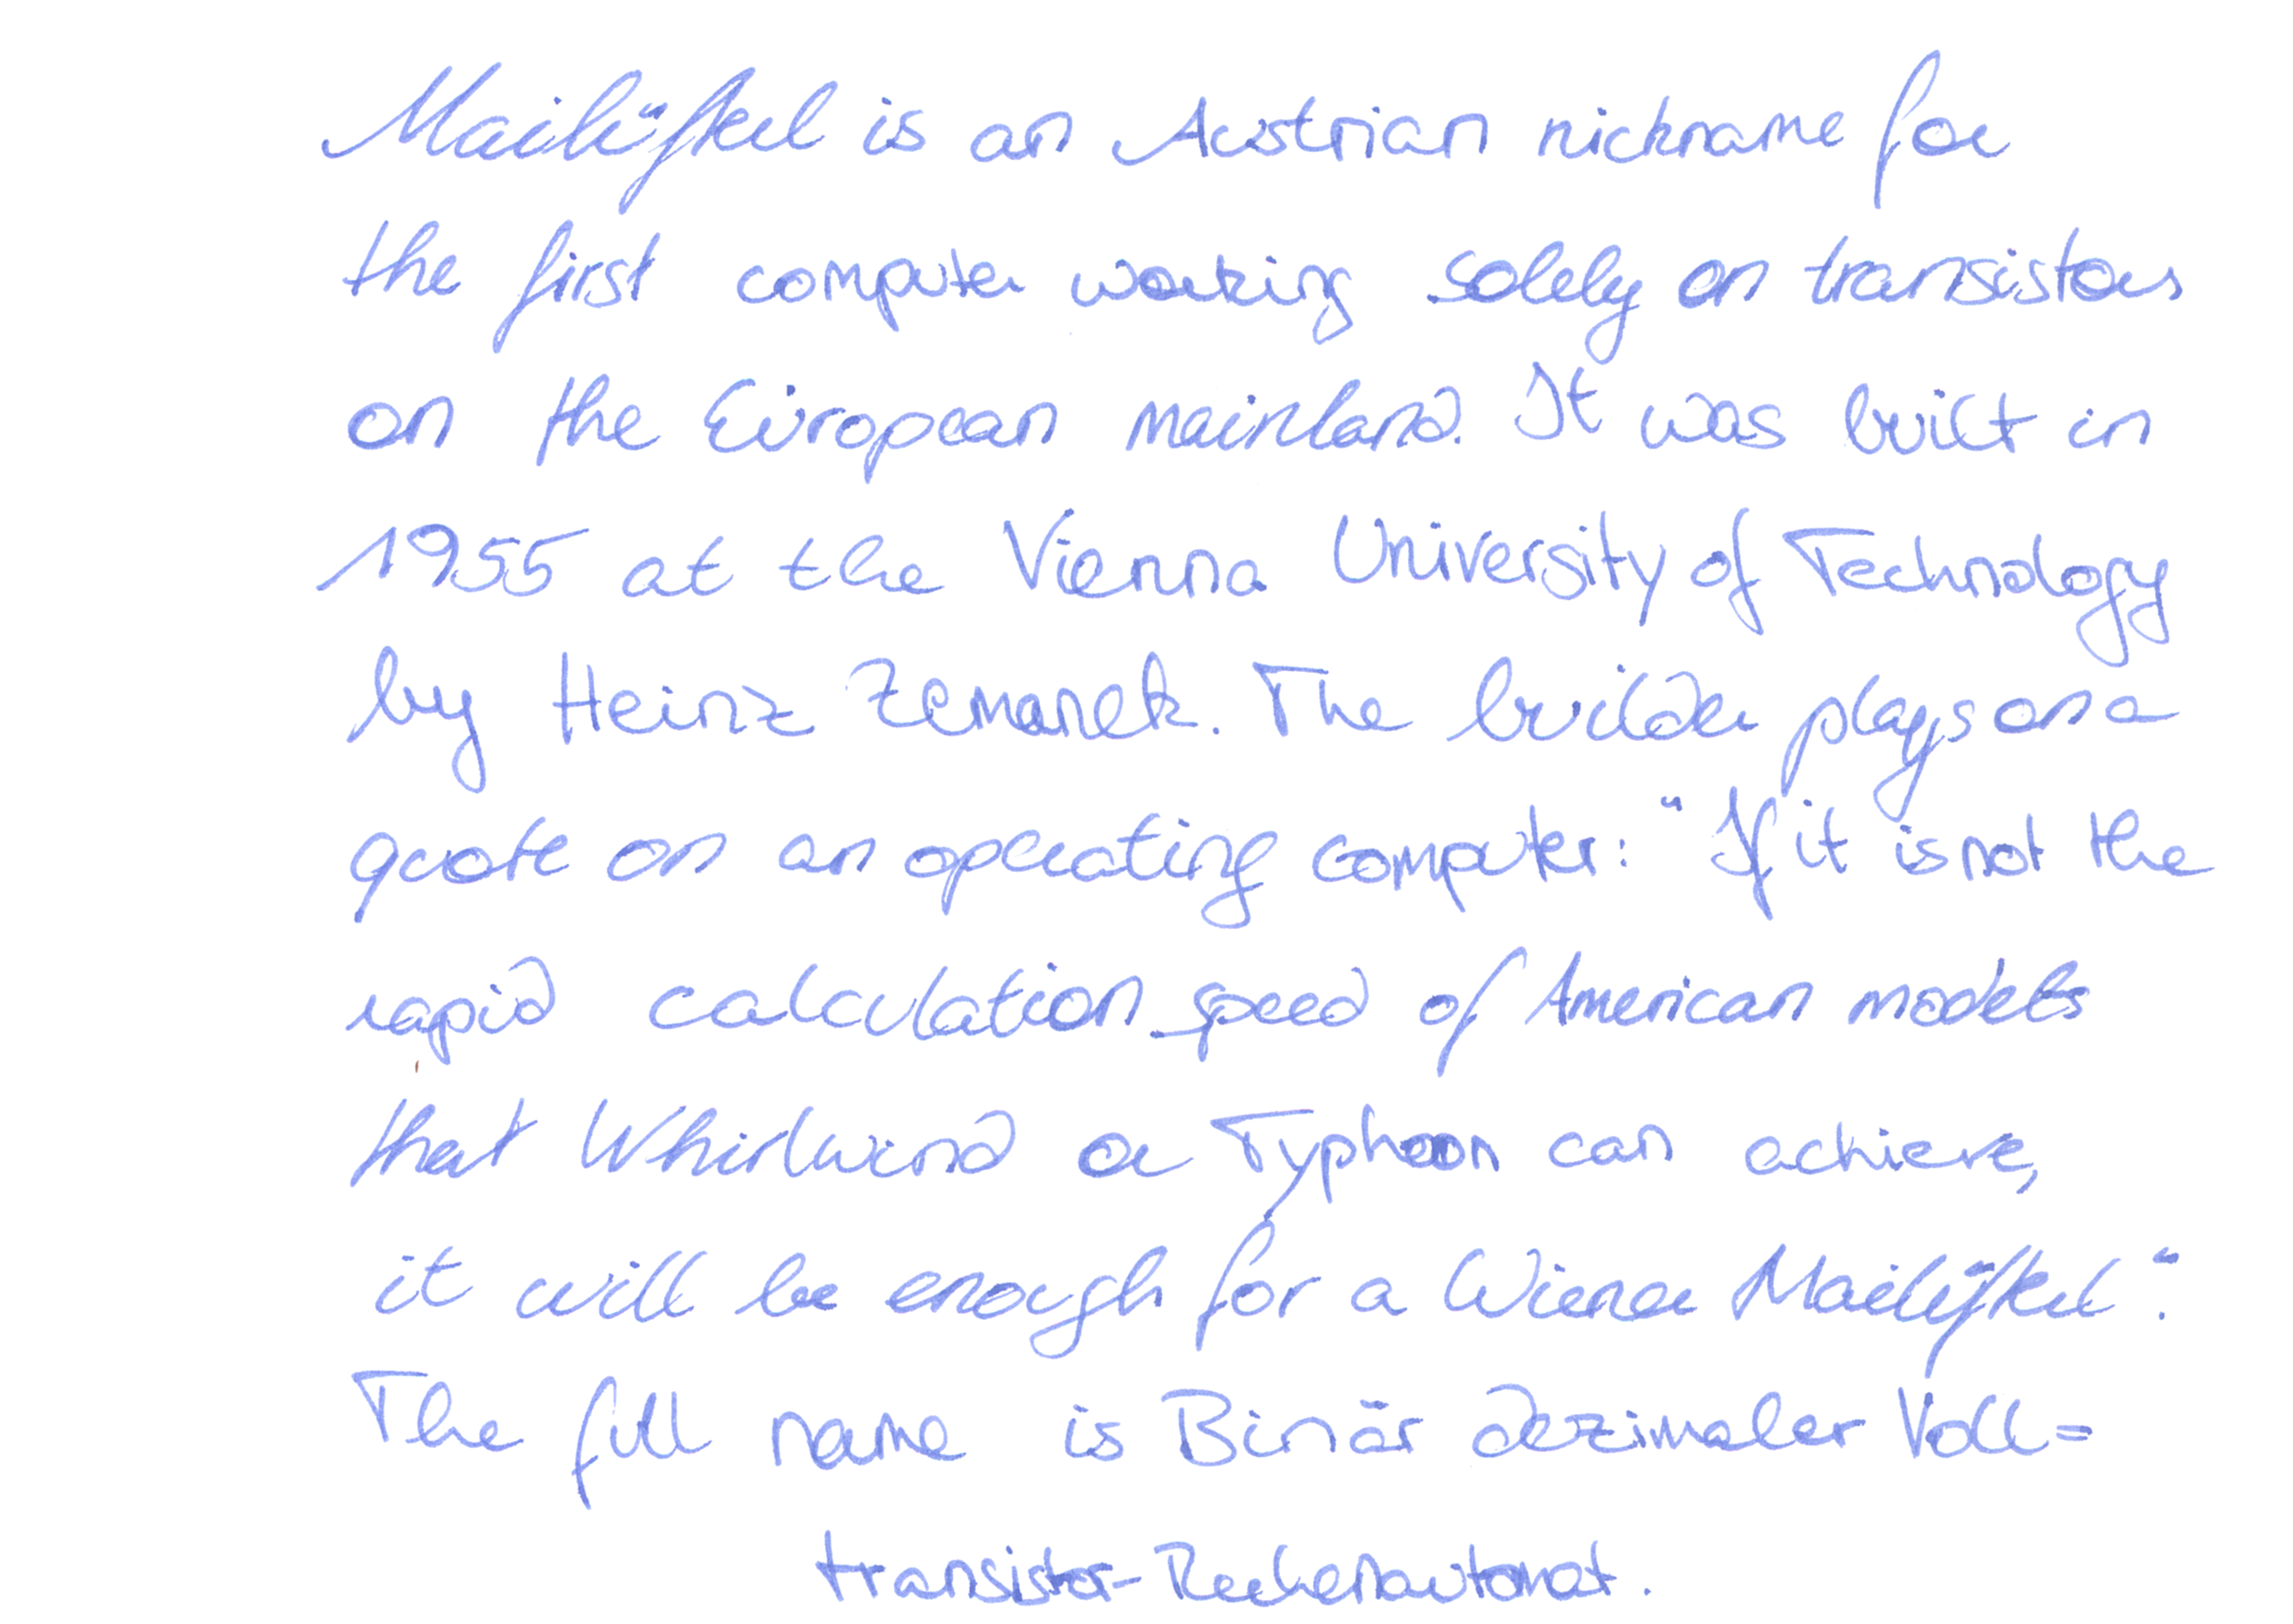 Mailüfterl is an Austrian nickname for
the first computer working solely on transistors
on the European mainland. It was built in
1955 at the Vienna University of Technology
by Heinz Zemanek. The builder plays on a
quote on an operating computer: "If it is not the
rapid calculation speed of American models
that Whirlwind or Typhoon can achieve,
it will be enough for a Wiener Mailüfterl".
The full name is Binär dezimaler Voll=
transistor-Rechenautomat.